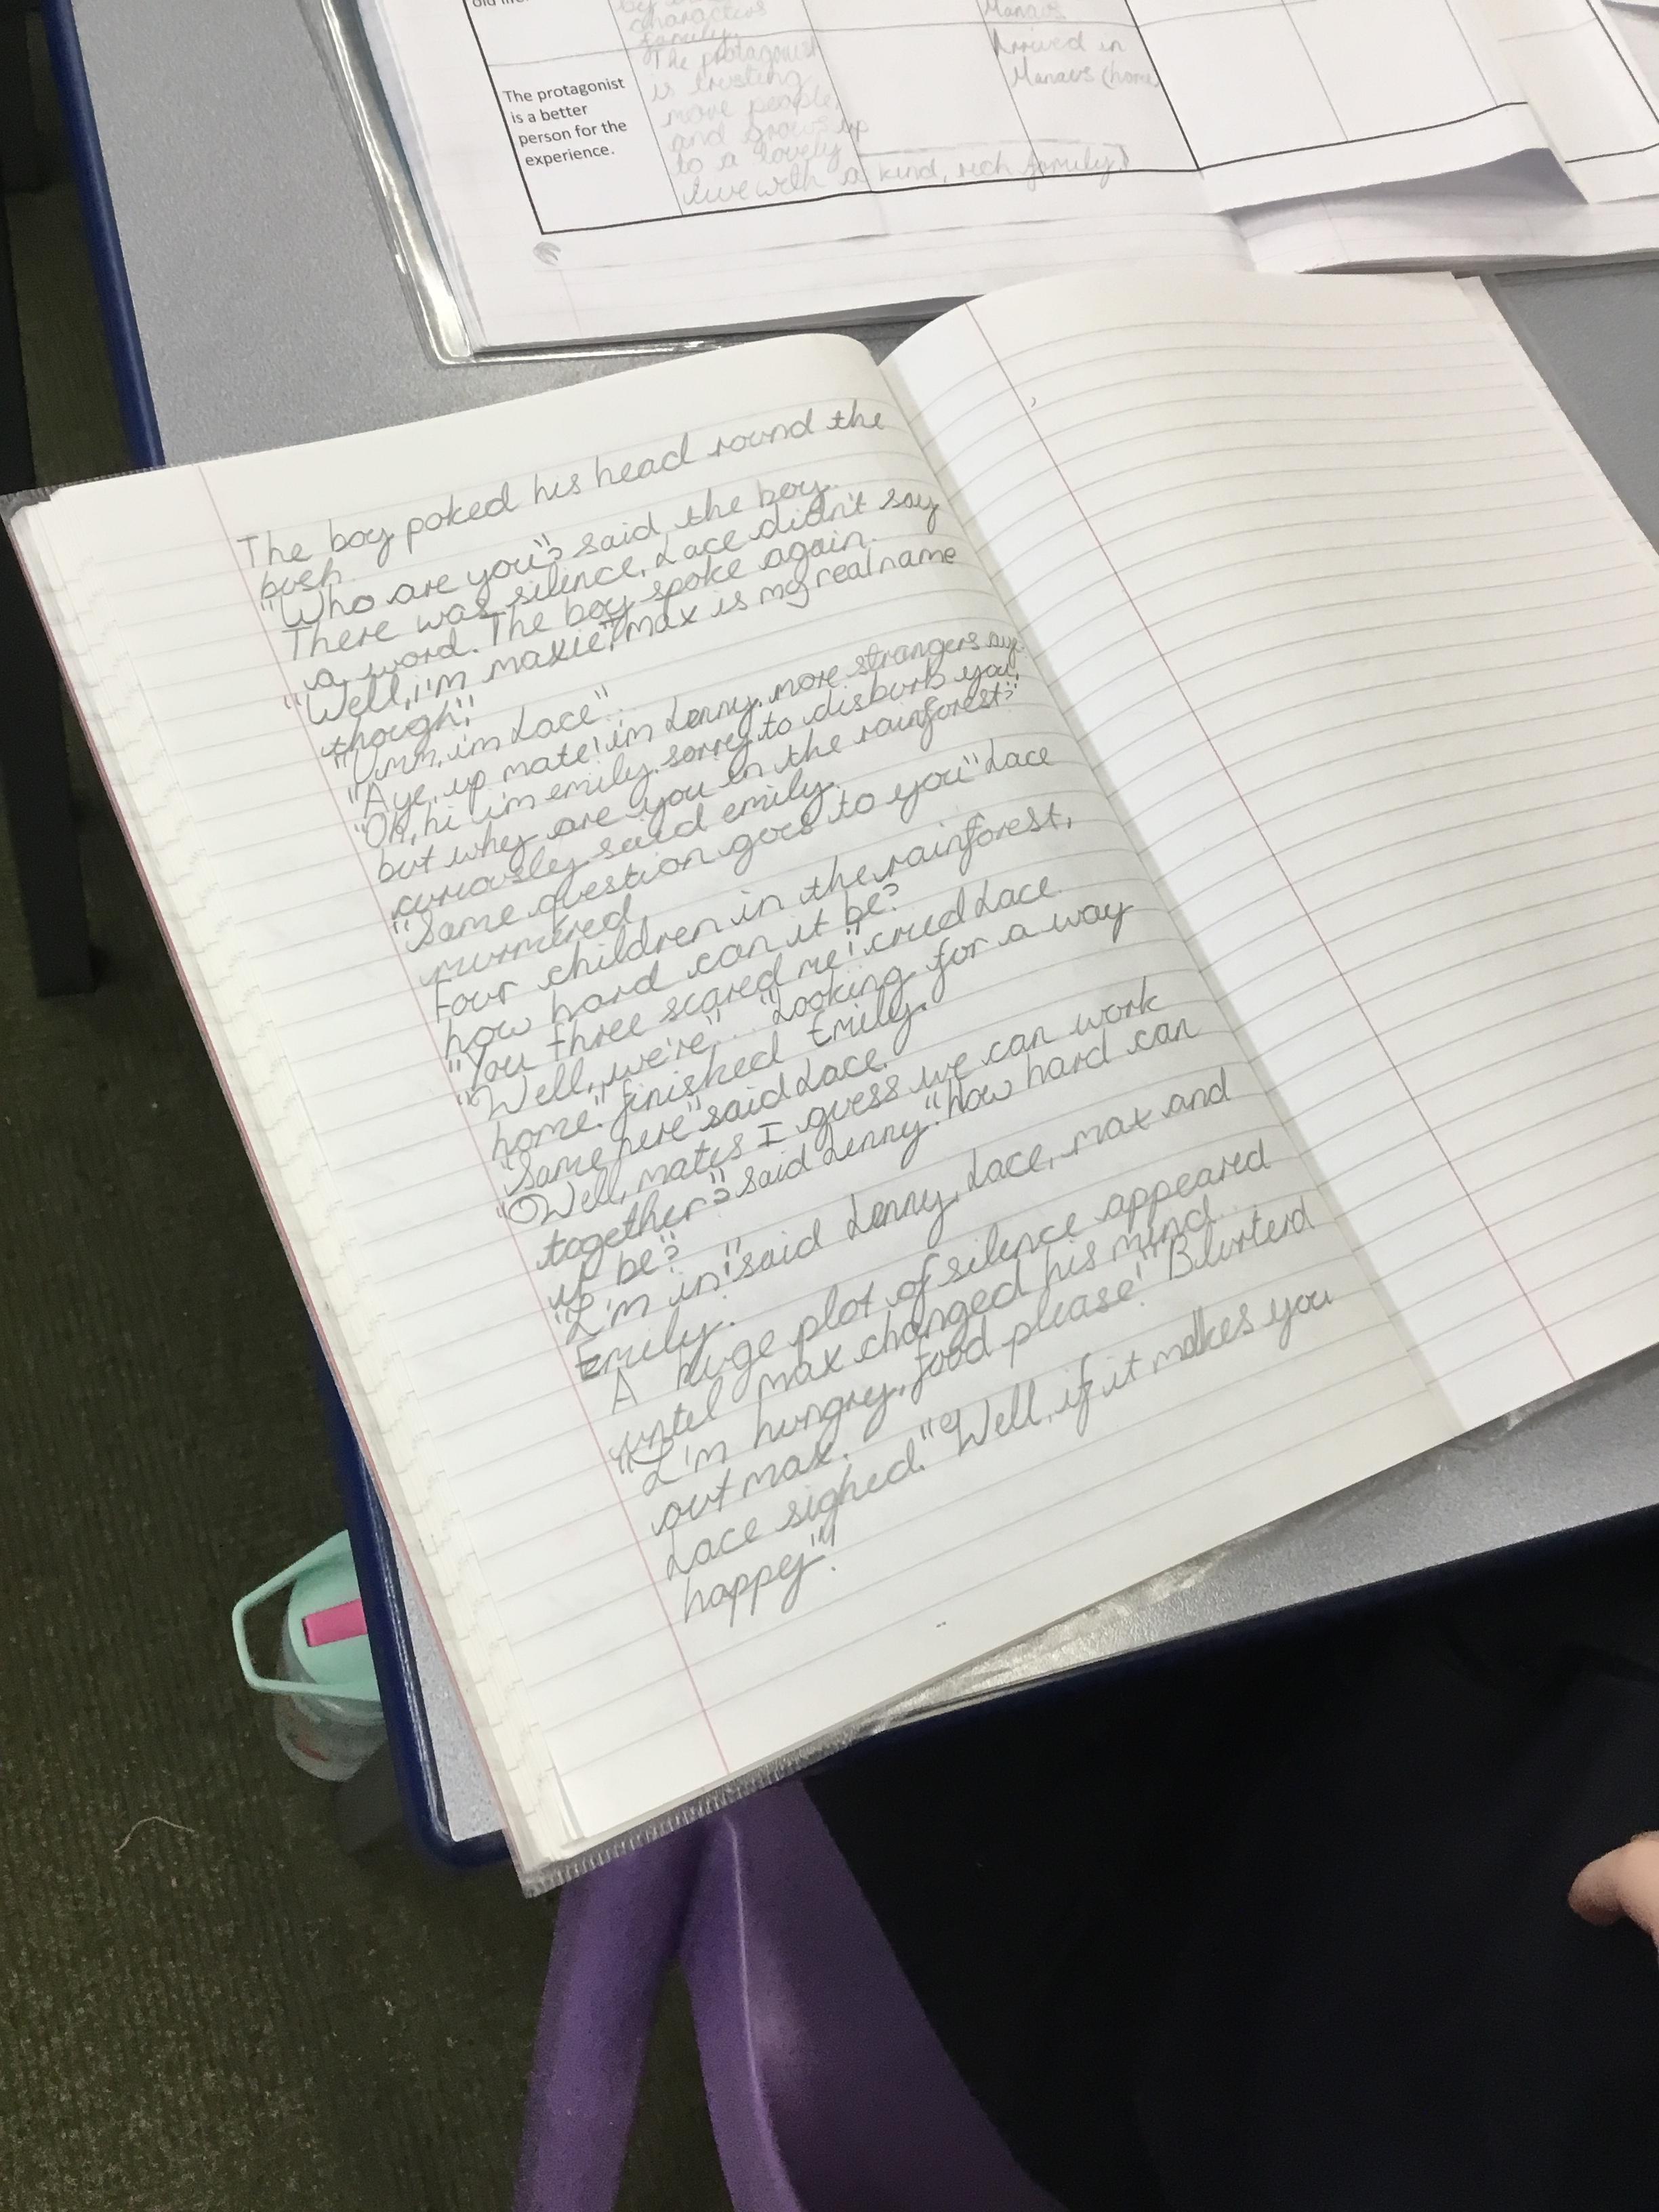 old life.
by
characters
family.
The protagonist
is trusting
more people,
and grows up
to a lovely
live with a kind, rich family)
Manaus
Arrived in
Manaus (home
The protagonist
is a better
person for the
experience.
The boy poked his head round the
bush.
"Who are you"? said the boy.
There was silence, Lace didn't say
a word. The boy spoke again.
"Well, i'm maxie", max is my real name
though".
"Umm, im Lace"...
"Aye, up mate! im Lenny, more strangers aye
"Oh, hi i'm emily, sorry to disburb you,
but why are you in the rainforest?"
curiously said emily.
"Same question goes to you" Lace
murmered.
Four children in the rainforest,
how hard can it be?
"You three scared me"! cried Lace.
"Well, we're"... "Looking for a way
home." finished Emily.
"Same here" said Lace.
"Well, mates I guess we can work
together"? said Lenny. "How hard can
it be"?
"I'm in"! said Lenny, Lace, max and
Emily.
A huge plot of silence appeared
until max changed his mind...
"I'm hungry, food please!" Blurterd
out max.
Lace sighed. "Well, if it makes you
happy"!